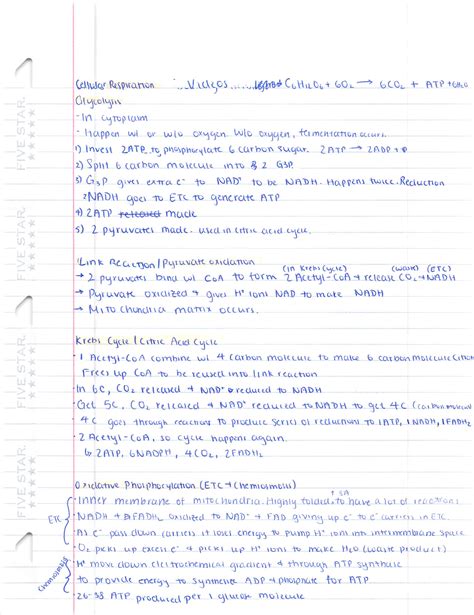 Cellular Respiration ...Videos... C6H12O6 + 6O2 → 6CO2 + ATP + 6H2O
Glycolysis
- In cytoplasm
- Happen w/ or w/o oxygen. W/o oxygen, fermentation occurs.
1) Invest 2ATP to phosphorylate 6 carbon sugar. 2ATP → 2ADP + P
2) Split 6 carbon molecule into 2 G3P
3) G3P gives extra e- to NAD+ to be NADH. Happens twice. Reduction
2NADH goes to ETC to generate ATP
4) 2ATP released made
5) 2 pyruvates made. used in citric acid cycle.
Link Reaction/Pyruvate oxidation
(in Krebs Cycle) (waste) (ETC)
→ 2 pyruvates bind w/ CoA to form 2 Acetyl-CoA + release CO2 + NADH
→ Pyruvate oxidized + gives H+ ions NAD to make NADH
→ Mitochondria matrix occurs.
Krebs Cycle/Citric Acid Cycle
- 1 Acetyl-CoA combine w/ 4 carbon molecule to make 6 carbon molecule
Frees up CoA to be reused into link reaction
- In 6C, CO2 released + NAD+ reduced to NADH
- Get 5C, CO2 released + NAD+ reduced to NADH to get 4C (carbon
- 4C goes through reactions to produce series of reductions to 1ATP, 1NADH, 1FADH2
- 2 Acetyl-CoA, so cycle happens again.
2ATP, 6NADPH, 4CO2, 2FADH2
Oxidative Phosphorylation (ETC + Chemiosmosis)
↑ SA
- Inner membrane of mitochondria. Highly folded to have a lot of reactions
ETC
- NADH + FADH2 oxidized to NAD+ + FAD giving up e- to e- carriers in ETC.
- As e- pass down carriers it loses energy to pump H+ ions into intermembrane space
- O2 picks up excess e- + picks up H+ ions to make H2O (waste product)
Chemiosmosis
- H+ move down electrochemical gradient + through ATP synthase
to provide energy to synthesize ADP + phosphate for ATP
- ATP produced per 1 glucose molecule
FIVE STAR.
FIVE STAR.
FIVE STAR.
FIVE STAR.